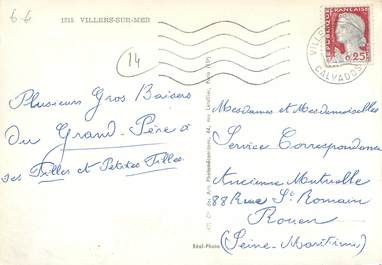 6 €
1215 VILLERS-SUR-MER
14
REPUBLIQUE FRANÇAISE
0,25
VILLE
CALVADOS
Plusieurs Gros Baisers
du Grand-Père à
ses Filles et Petites Filles
Mesdames et Mesdemoiselles
Service Correspondance
Ancienne Mutuelle
88 Rue St Romain
Rouen
(Seine-Maritime)
Réel-Photo